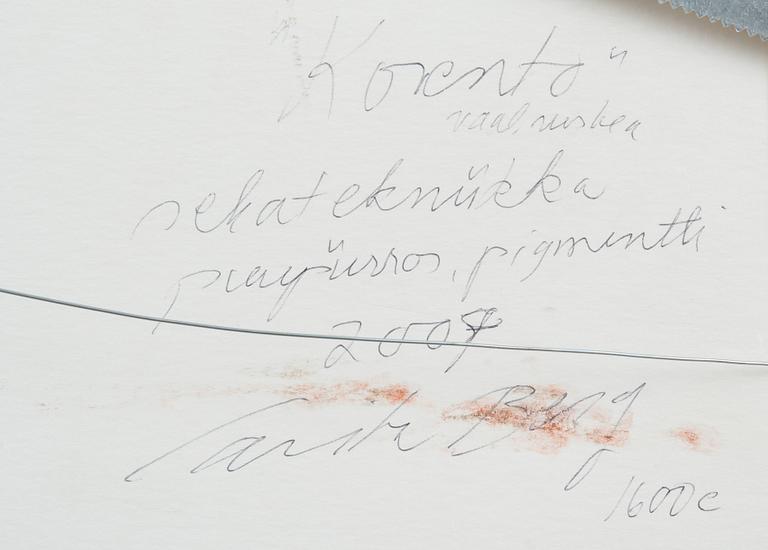 "Korento"
vaal. ruskea
sekatekniikka
puupiirros, pigmentti
2007
Berg
1600 e